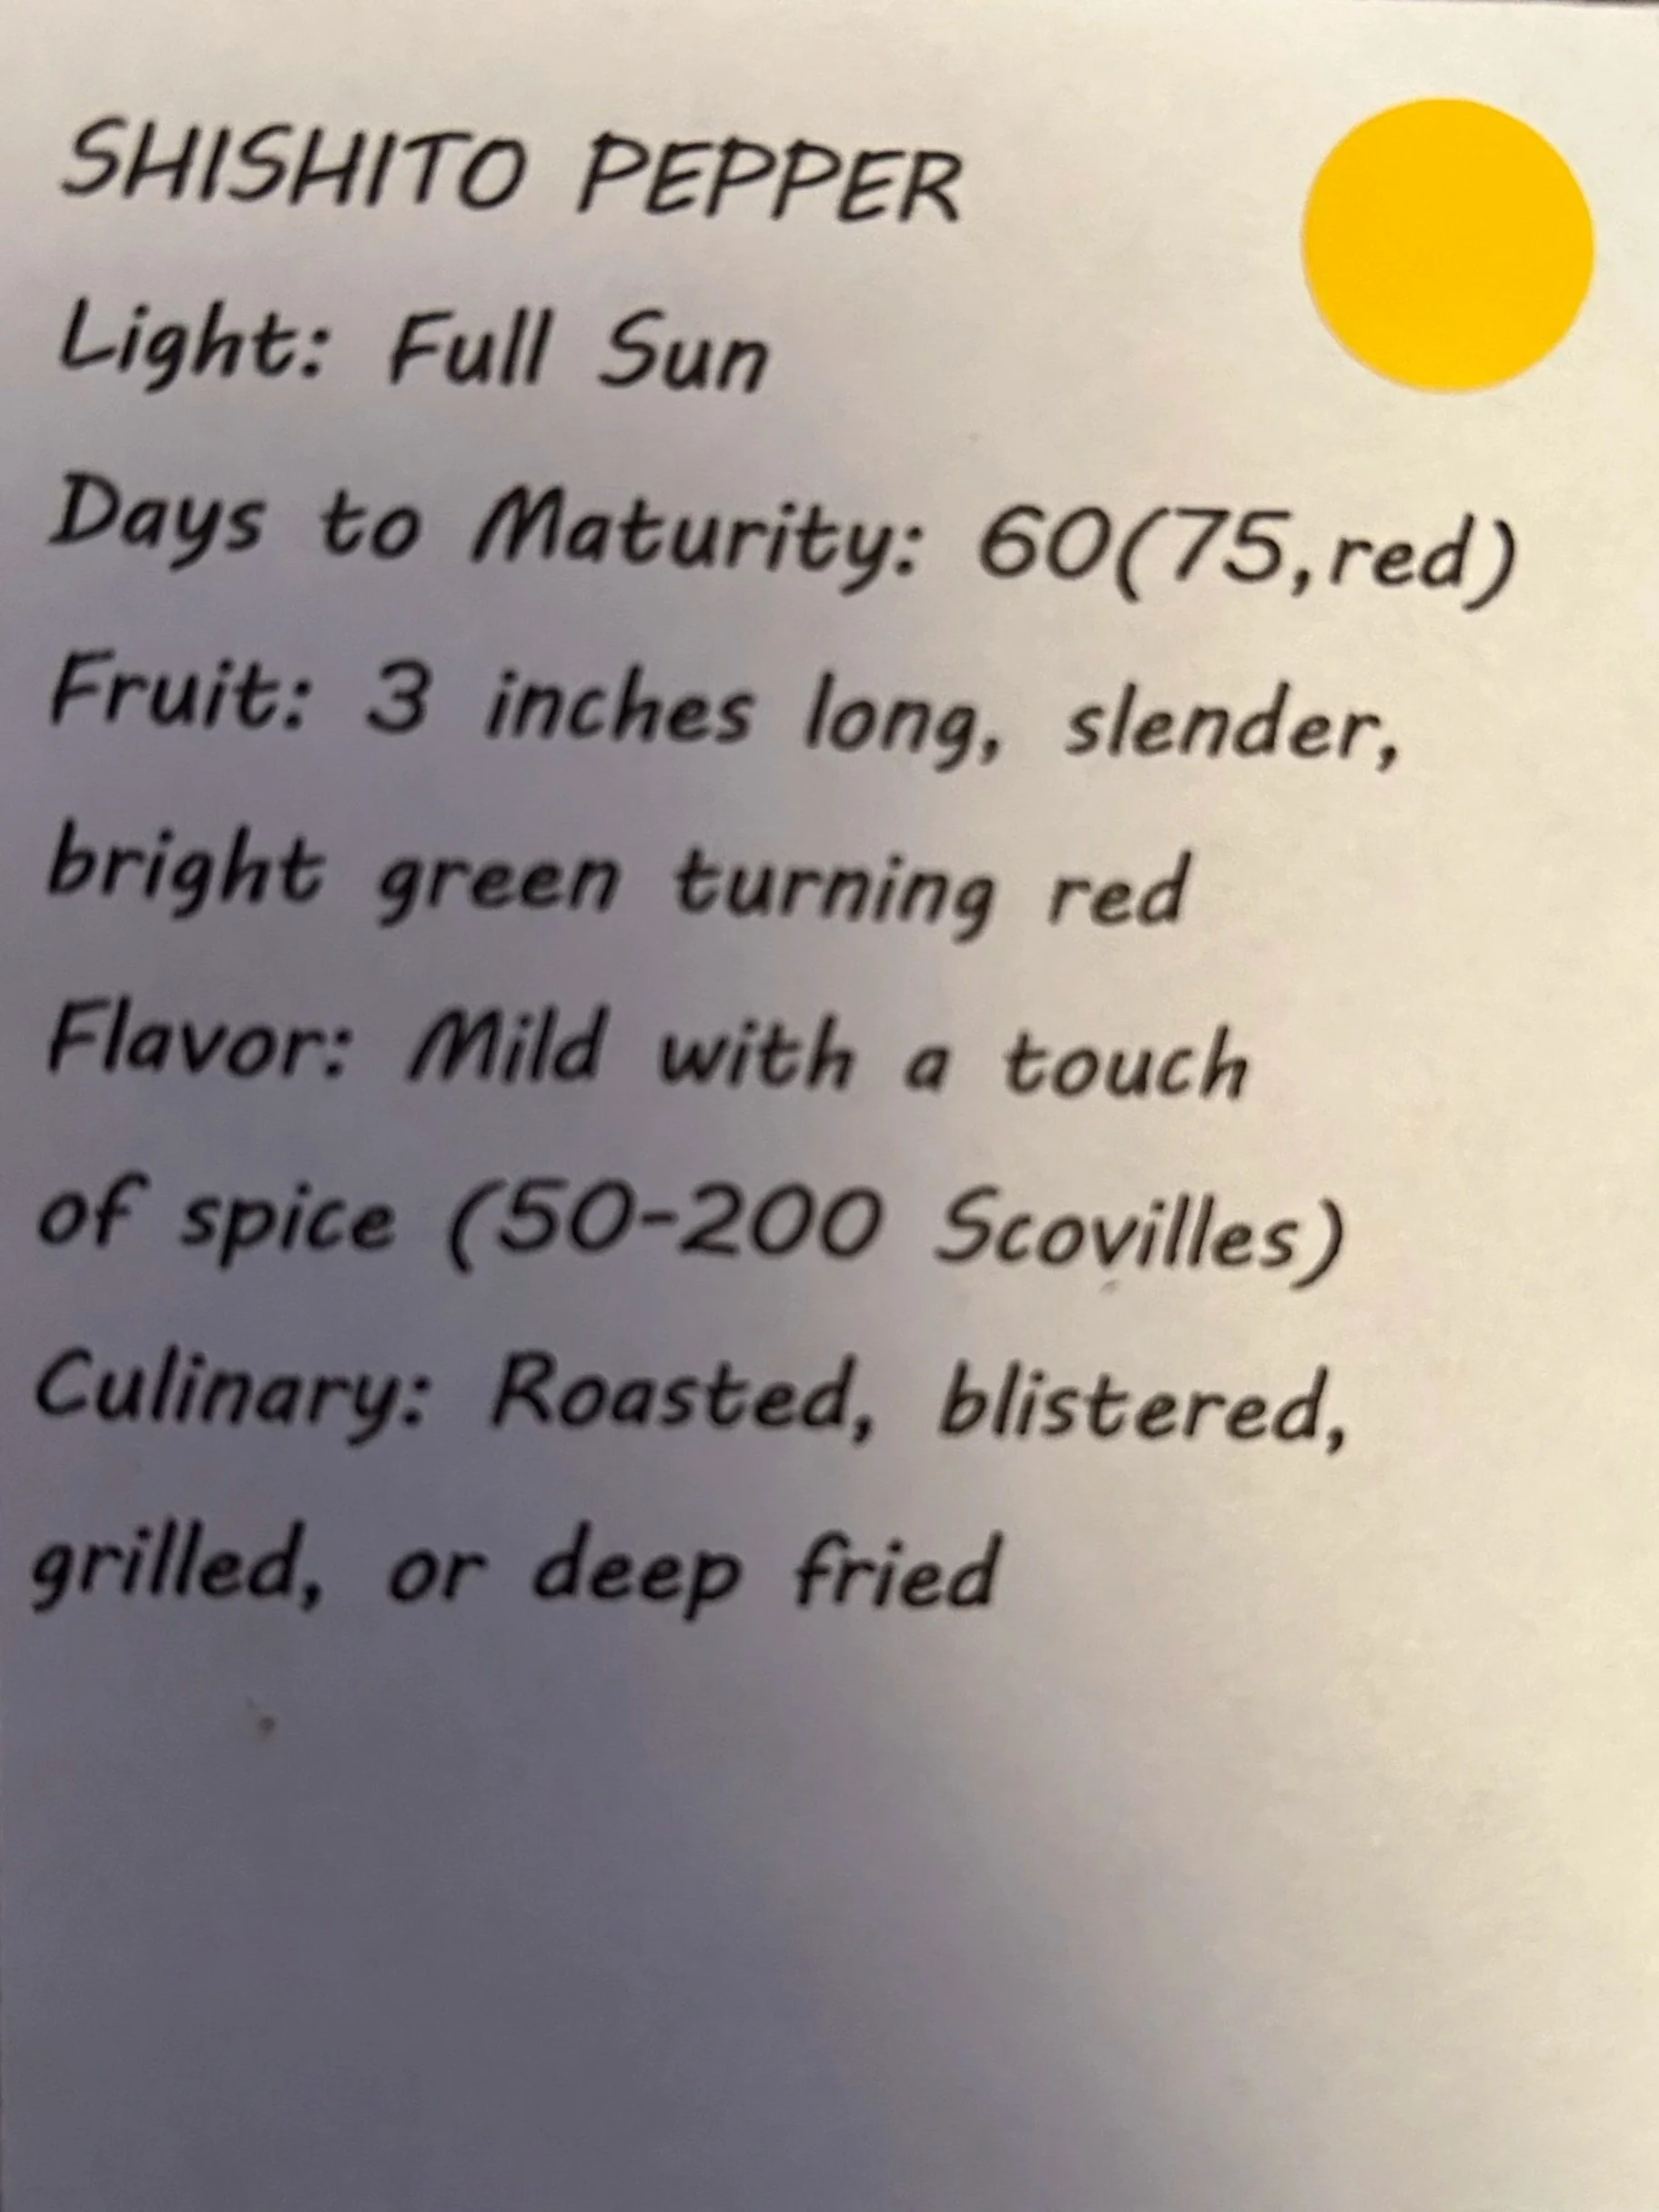 SHISHITO PEPPER
Light: Full Sun
Days to Maturity: 60(75,red)
Fruit: 3 inches long, slender,
bright green turning red
Flavor: Mild with a touch
of spice (50-200 Scovilles)
Culinary: Roasted, blistered,
grilled, or deep fried